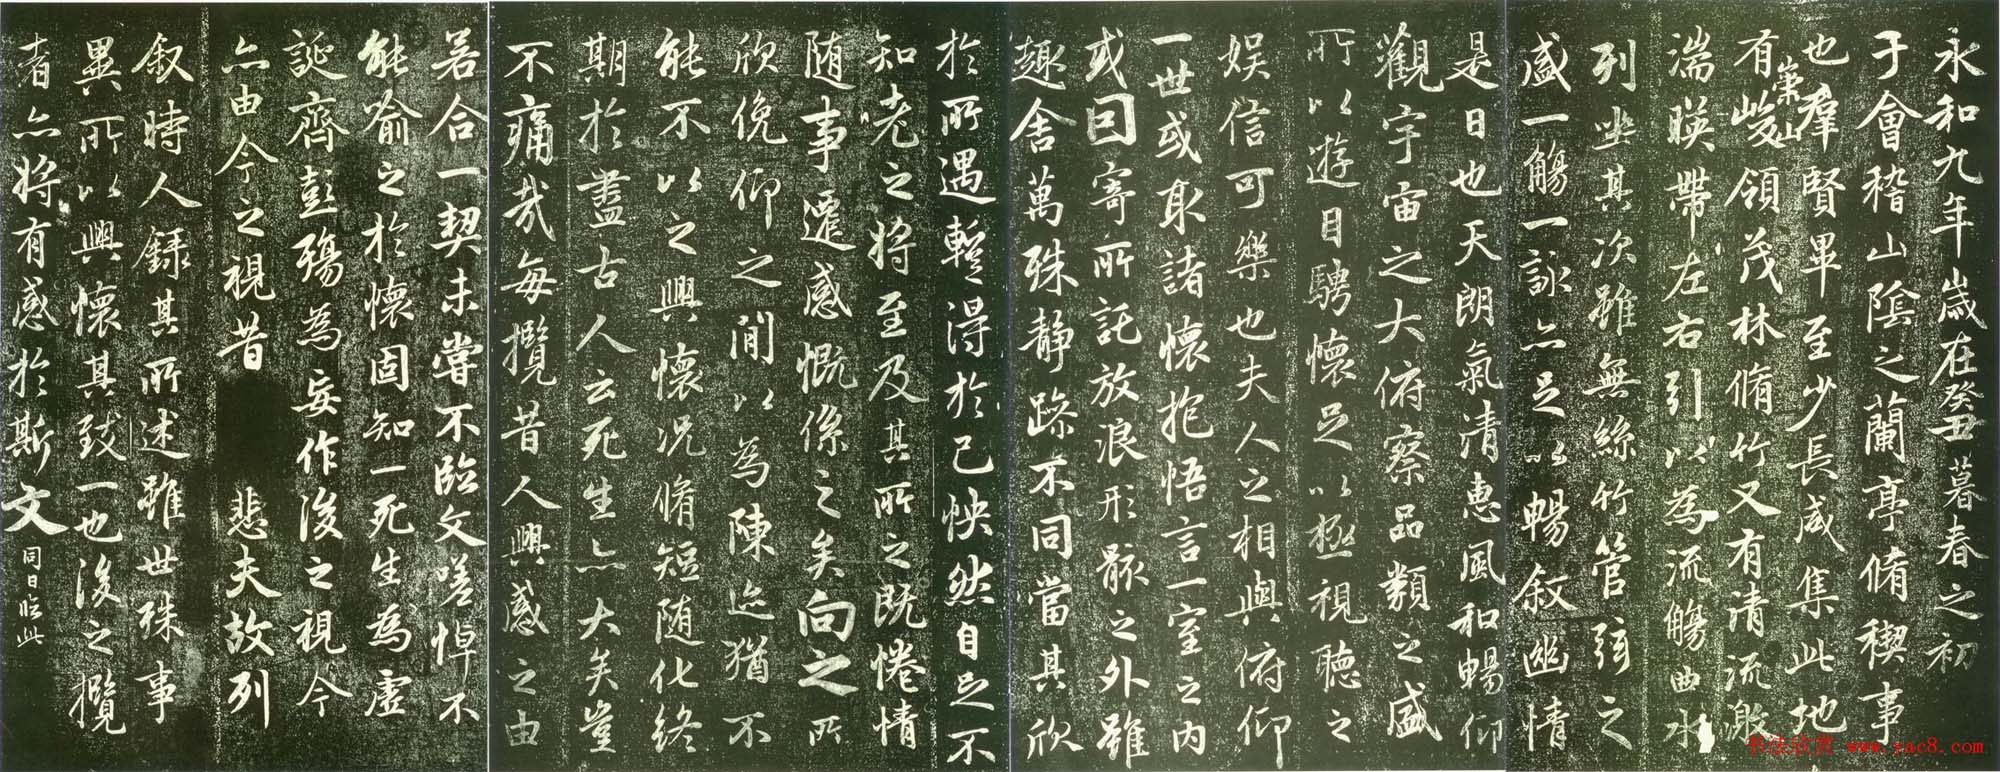 永和九年歲在癸丑暮春之初
于會稽山陰之蘭亭脩稧事
也羣賢畢至少長咸集此地
有崇山峻領茂林脩竹又有清流激
湍暎帶左右引以為流觴曲水
列坐其次雖無絲竹管弦之
盛一觴一詠亦足以暢敘幽情
是日也天朗氣清惠風和暢仰
觀宇宙之大俯察品類之盛
所以遊目騁懷足以極視聽之
娛信可樂也夫人之相與俯仰
一世或取諸懷抱悟言一室之內
或因寄所託放浪形骸之外雖
趣舍萬殊靜躁不同當其欣
於所遇暫得於己怏然自足不
知老之將至及其所之既惓情
隨事遷感慨係之矣向之所
欣俛仰之間以為陳迹猶不
能不以之興懷況脩短隨化終
期於盡古人云死生亦大矣豈
不痛哉每攬昔人興感之由
若合一契未嘗不臨文嗟悼不
能喻之於懷固知一死生為虛
誕齊彭殤為妄作後之視今
亦由今之視昔 悲夫故列
敘時人錄其所述雖世殊事
異所以興懷其致一也後之攬
者亦將有感於斯文 同日臨此
书法欣赏 www.yac8.com